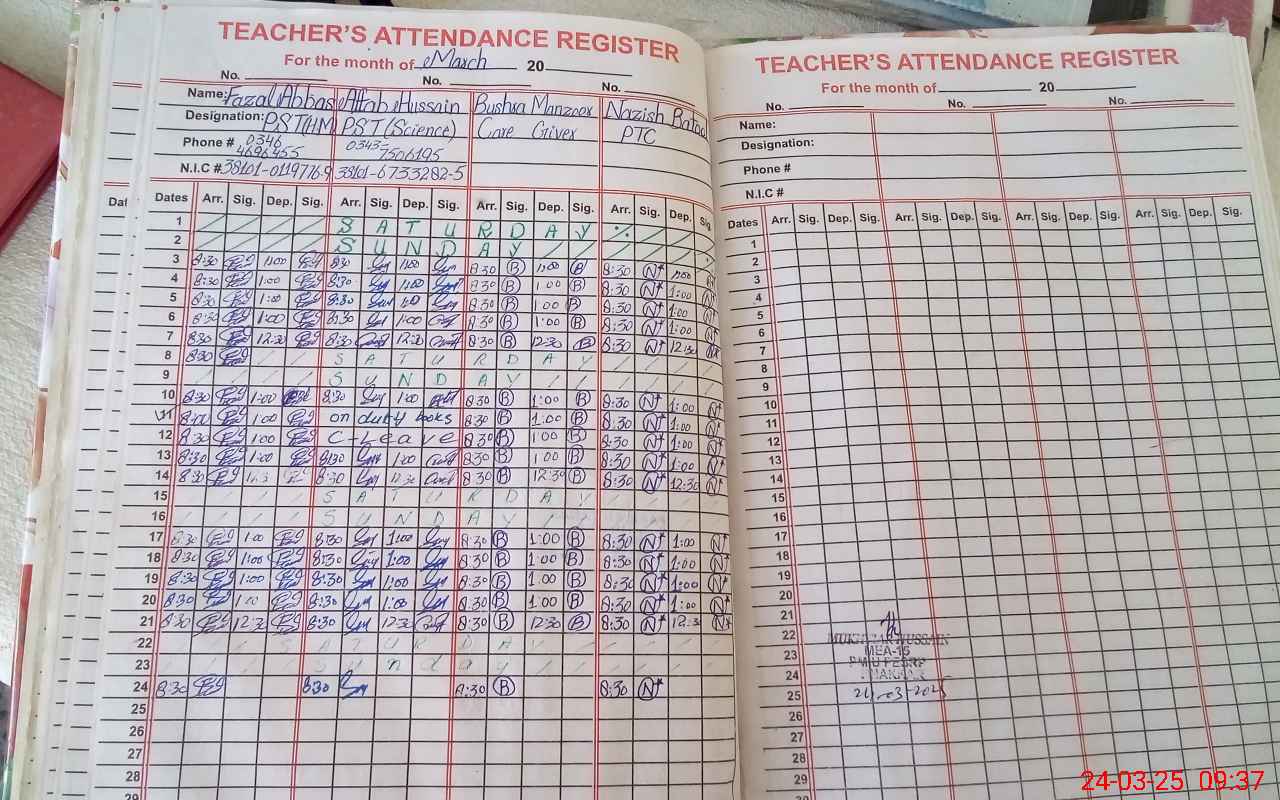 TEACHER'S ATTENDANCE REGISTER
For the month of March 20
No. No. No.
Name: Fazal Abbas Aftab Hussain Bushra Manzoor Nazish Batool
Designation: PST(HM) PST (Science) Care Giver PTC
Phone # 0346 4696455 0343-7506195
N.I.C # 38101-0119776-9 38101-6733282-5
Dates Arr. Sig. Dep. Sig. Arr. Sig. Dep. Sig. Arr. Sig. Dep. Sig. Arr. Sig. Dep. Sig.
1 S A T U R D A Y
2 S U N D A Y
3 8:30 1:00 8:30 1:00 8:30 B 1:00 B 8:30 N 1:00 N
4 8:30 1:00 8:30 1:00 8:30 B 1:00 B 8:30 N 1:00 N
5 8:30 1:00 8:30 1:00 8:30 B 1:00 B 8:30 N 1:00 N
6 8:30 1:00 8:30 1:00 8:30 B 1:00 B 8:30 N 1:00 N
7 8:30 12:30 8:30 12:30 8:30 B 12:30 B 8:30 N 12:30 N
8 8:30 S A T U R D A Y
9 S U N D A Y
10 8:30 1:00 8:30 1:00 8:30 B 1:00 B 8:30 N 1:00 N
11 1:00 on duty books 8:30 B 1:00 B 8:30 N 1:00 N
12 8:30 1:00 C-Leave 8:30 B 1:00 B 8:30 N 1:00 N
13 8:30 1:00 8:30 1:00 8:30 B 1:00 B 8:30 N 1:00 N
14 8:30 8:30 12:30 8:30 B 12:30 B 8:30 N 12:30 N
15 S A T U R D A Y
16 S U N D A Y
17 8:30 1:00 8:30 1:00 8:30 B 1:00 B 8:30 N 1:00 N
18 8:30 1:00 8:30 1:00 8:30 B 1:00 B 8:30 N 1:00 N
19 8:30 1:00 8:30 1:00 8:30 B 1:00 B 8:30 N 1:00 N
20 8:30 1:00 8:30 1:00 8:30 B 1:00 B 8:30 N 1:00 N
21 8:30 12:30 8:30 12:30 8:30 B 12:30 B 8:30 N 12:30 N
22 S A T U R D A Y
23 S u n d a y
24 8:30 8:30 8:30 B 8:30 N
25
26
27
28
29
TEACHER'S ATTENDANCE REGISTER
For the month of 20
No. No. No.
Name:
Designation:
Phone #
N.I.C #
Dates Arr. Sig. Dep. Sig. Arr. Sig. Dep. Sig. Arr. Sig. Dep. Sig. Arr. Sig. Dep. Sig.
1
2
3
4
5
6
7
8
9
10
11
12
13
14
15
16
17
18
19
20
21
22 MUKHTAR HUSSAIN
23 MEA-15
24 PMIU PESRP
25 24-03-2025
26
27
28
29
24-03-25 09:37